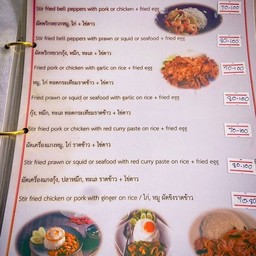 Stir fried bell peppers with pork or chicken + fried egg
70-100
ผัดพริกหยวกหมู, ไก่ + ไข่ดาว
Stir fried bell peppers with prawn or squid or seafood + fried egg
80-100
ผัดพริกหยวกกุ้ง, หมึก, ทะเล + ไข่ดาว
Fried pork or chicken with garlic on rice + fried egg
70-100
หมู, ไก่ ทอดกระเทียมราดข้าว + ไข่ดาว
Fried prawn or squid or seafood with garlic on rice + fried egg
80-100
กุ้ง, หมึก, ทะเล ทอดกระเทียมราดข้าว + ไข่ดาว
Stir fried pork or chicken with red curry paste on rice + fried egg
70-100
ผัดเครื่องแกงหมู, ไก่ ราดข้าว + ไข่ดาว
Stir fried prawn or squid or seafood with red curry paste on rice + fried egg
80-100
ผัดเครื่องแกงกุ้ง, ปลาหมึก, ทะเล ราดข้าว + ไข่ดาว
Stir fried chicken or pork with ginger on rice / ไก่, หมู ผัดขิงราดข้าว
70-80